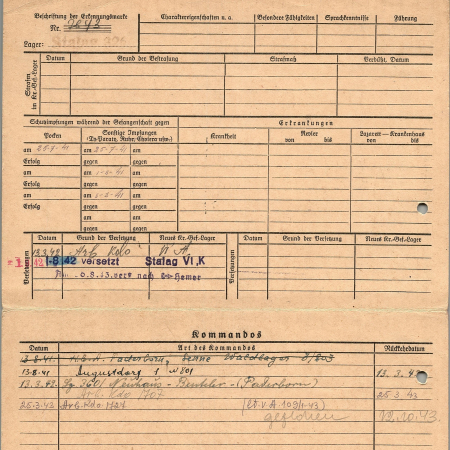 Beschriftung der Erkennungsmarke
Charaktereigenschaften u. a.
Besondere Fähigkeiten
Sprachkenntnisse
Führung
Nr.
Lager: Stalag 326
Strafen in Kr.-Gef.-Lager
Datum
Grund der Bestrafung
Strafmaß
Verbüßt, Datum
Schutzimpfungen während der Gefangenschaft gegen
Erkrankungen
Pocken
Sonstige Impfungen
(Ty-Paraty, Ruhr, Cholera usw.)
Krankheit
Revier
von bis
Lazarett — Krankenhaus
von bis
am 25.7.41 am 25.7.41
Erfolg gegen
am am
Erfolg gegen gegen
am am
Erfolg gegen gegen
am am
Erfolg gegen gegen
am
gegen
Versetzungen
Datum
Grund der Versetzung
Neues Kr.-Gef.-Lager
Versetzungen
Datum
Grund der Versetzung
Neues Kr.-Gef.-Lager
13.3.42 Arb. Kdo VI A
8.42 versetzt Stalag VI,K
8.43 vers nach Hemer
Kommandos
Datum
Art des Kommandos
Rückkehrdatum
13.8.41. H.B.A. Paderborn, Senne Waldlager
13.8.41 Augustdorf 1 W 801 13.3.42
13.3.42. Neuhaus - Benteler - (Paderborn)
Arb. Kdo 1707 25.3.43
25.3.43 Arb. Kdo 1427
geflohen 12.10.43.